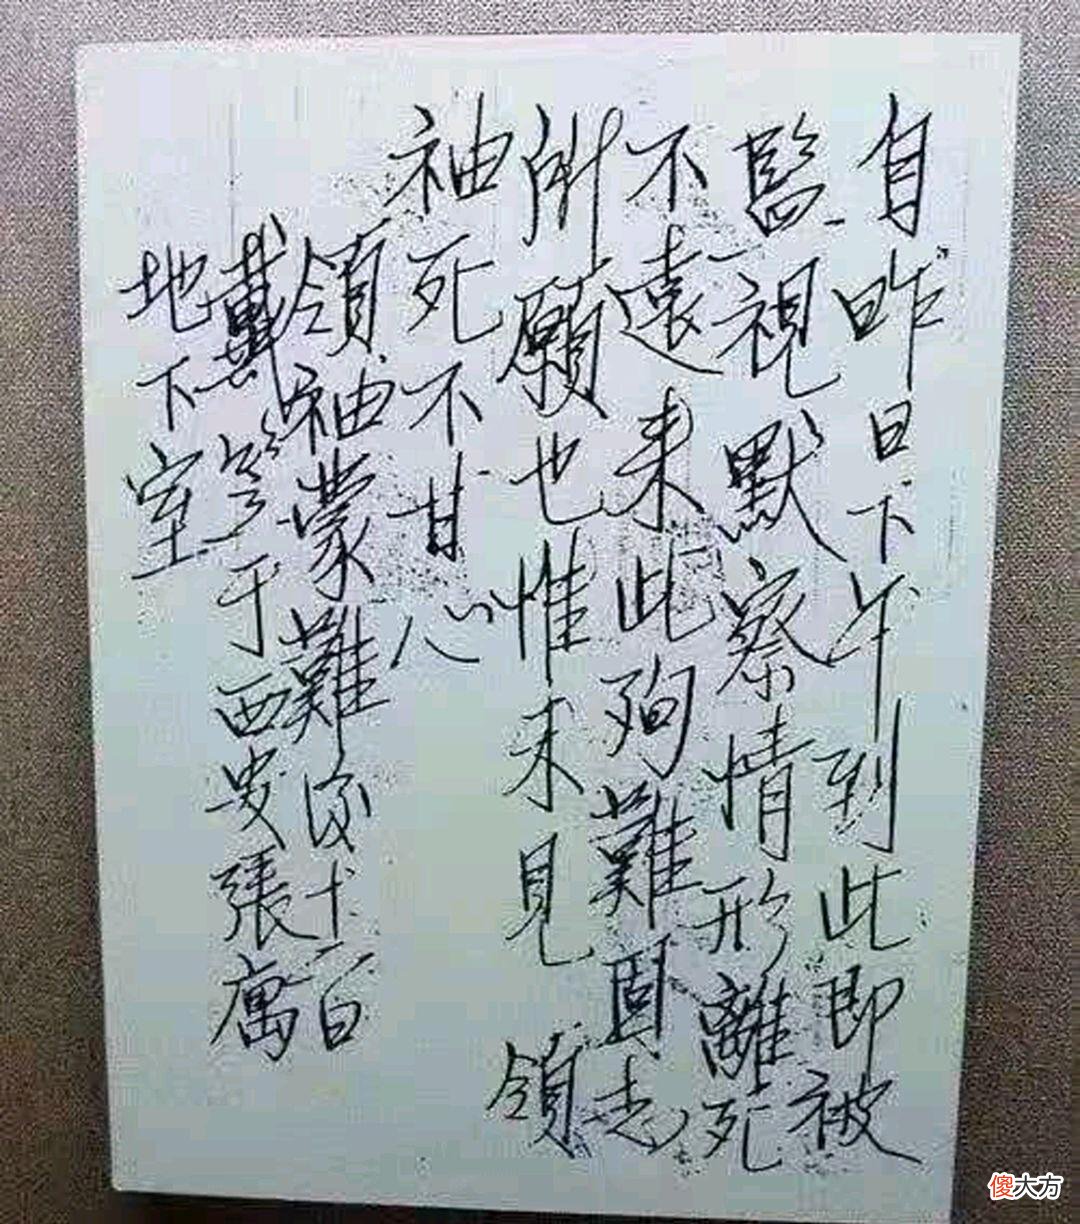 自昨日下午到此即被
監視默察情形離死
不遠來此殉難固志
所願也惟未見領
袖死不甘心
領袖蒙難後十二日
戴笠于西安張寓
地下室
傻大方